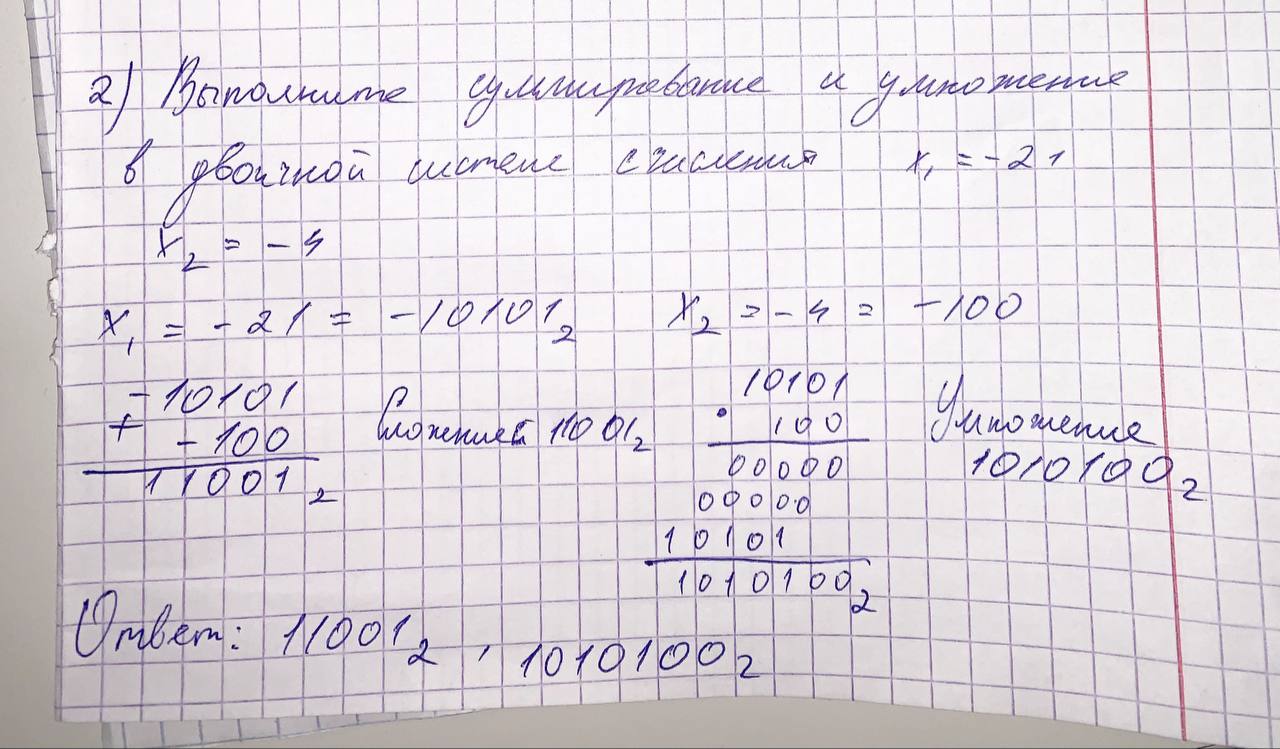 2) Выполните суммирование и умножение
в двоичной системе счисления x₁ = -21
x₂ = -4
x₁ = -21 = -10101₂ x₂ = -4 = -100
-10101
+ -100
11001₂
Сложение: 11001₂
10101
· 100
00000
00000
10101
1010100₂
Умножение
1010100₂
Ответ: 11001₂, 1010100₂